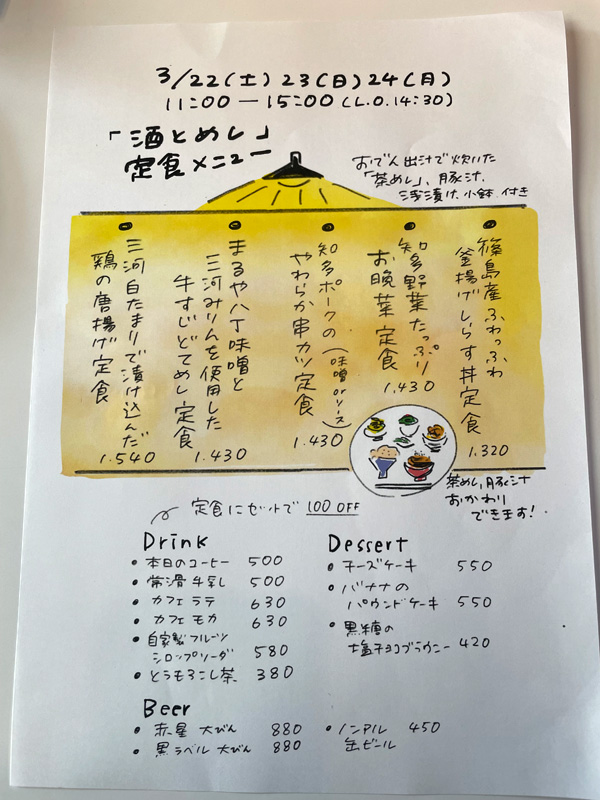 3/22(土)23(日)24(月)
11:00ー15:00(L.O.14:30)
「酒とめし」
定食メニュー
おでん出汁で炊いた
「茶めし」、豚汁、
浅漬け、小鉢 付き
篠島産ふわっふわ
釜揚げしらす丼定食
1.320
知多野菜たっぷり
お晩菜定食
1.430
知多ポークの(味噌orソース)
やわらか串カツ定食
1.430
まるや八丁味噌と
三河みりんを使用した
牛すじどてめし定食
1.430
三河白たまりで漬け込んだ
鶏の唐揚げ定食
1.540
茶めし、豚汁
おかわり
できます!
定食にセットで 100 OFF
Drink
・本日のコーヒー 500
・常滑牛乳 500
・カフェラテ 630
・カフェモカ 630
・自家製フルーツ
シロップソーダ 580
・とうもろこし茶 380
Dessert
・チーズケーキ 550
・バナナの
パウンドケーキ 550
・黒糖の
塩チョコブラウニー 420
Beer
・赤星 大びん 880
・黒ラベル 大びん 880
・ノンアル 450
缶ビール